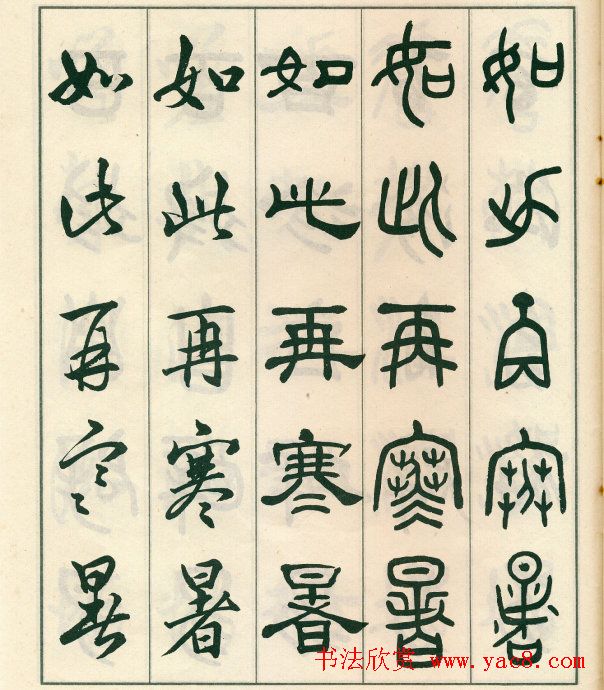 如此再寒暑
如此再寒暑
如此再寒暑
如此再寒暑
如此再寒暑
书法欣赏 www.yac8.com